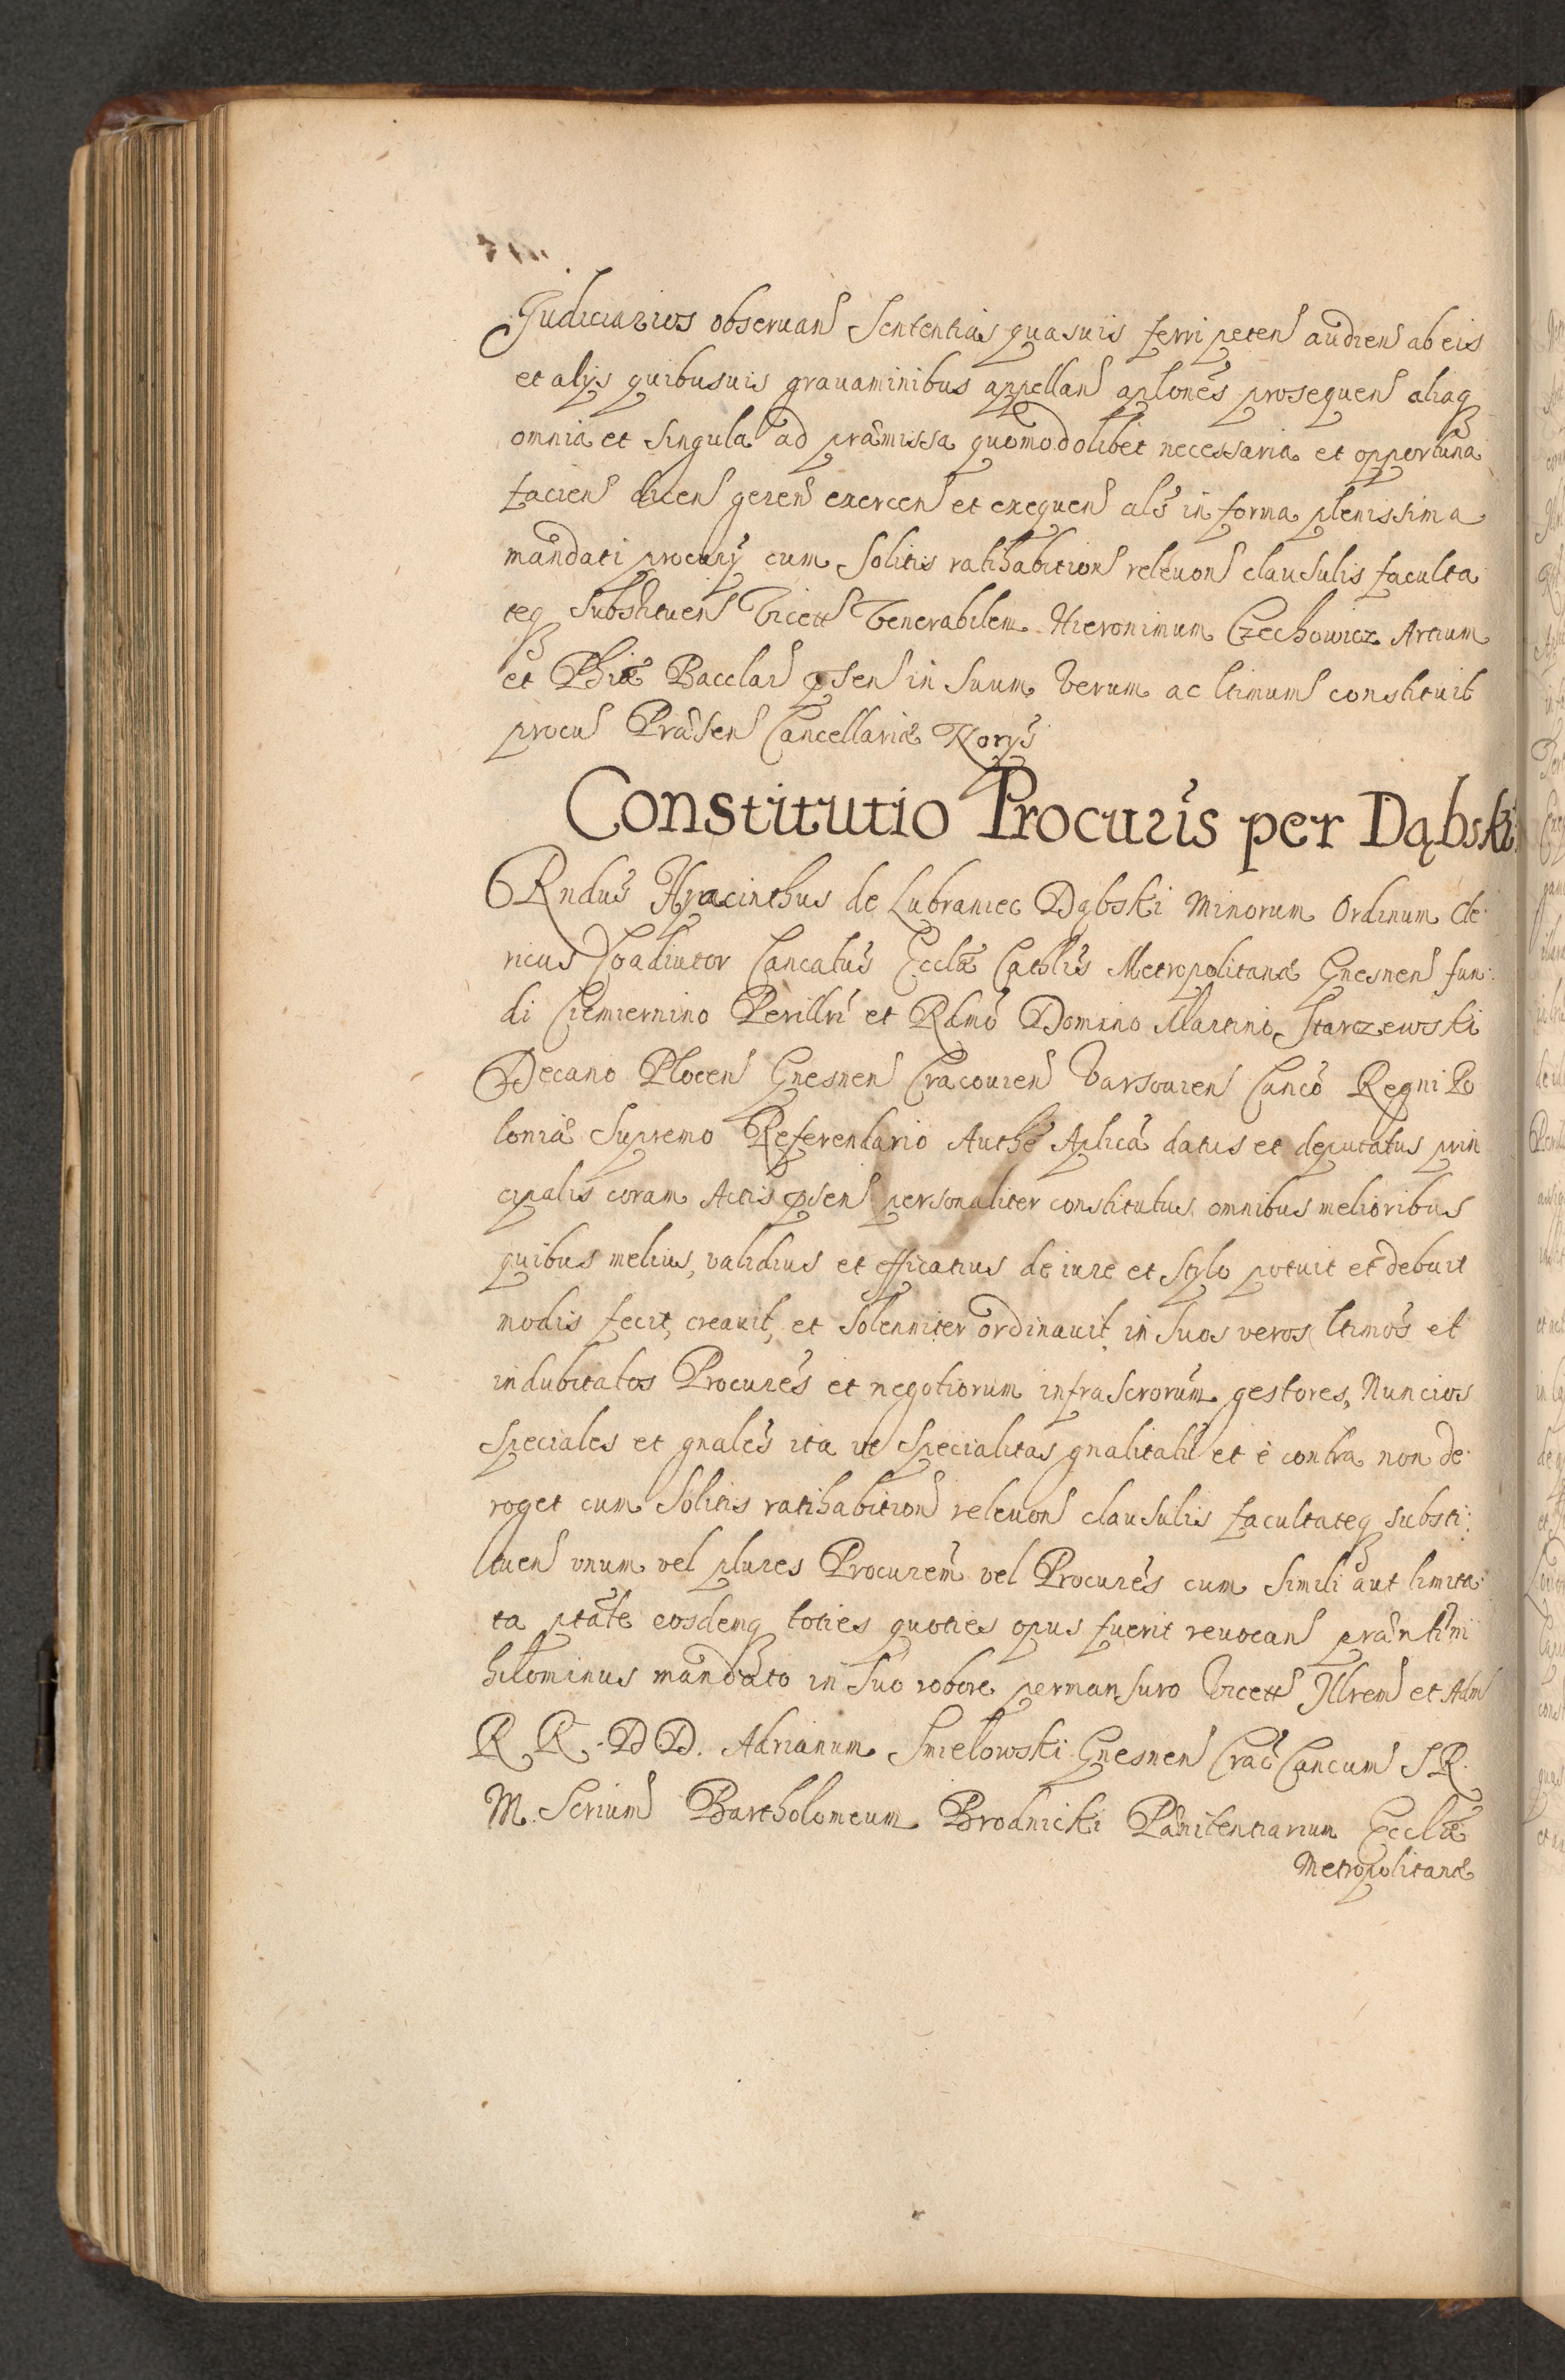 Judiciarios obseruan Sententias quasuis ferri peten audien ab eis
et alijs quibusuis grauaminibus appellan aplones prosequen aliaq
omnia et singula ad præmissa quomodolibet necessaria et opportuna
facien dicen geren exercen et exequen als in forma plenissima
mandati procurÿ cum solitis ratihabition releuon clausulis faculta
teq substituen Vicett Venerabilem Hieronimum Czechowicz Artium
et Phiæ Bacclar psen in suum verum ac ltimum constituit
procur Præsen Cancellariæ Norijs
Constitutio Procuris per Dąbski
Rndus Hyacinthus de Lubraniec Dąbski Minorum Ordinum Cle:
ricus Coadiutor Cancatus Ecclæ Catdlis Metropolitanæ Gnesnen fun:
di Ciemiernino Perillri et Rdmo Domino Martino Starczewski
Decano Plocen Gnesnen Cracouien Varsouien Canco Regni Po
loniæ Supremo Referendario Authe Aplica datus et deputatus prin
cipalis coram Actis psen personaliter constitutus omnibus melioribus
quibus melius, validius et efficatius de iure et stylo potuit et debuit
modis fecit, creauit, et solenniter ordinauit in suos veros ltimos et
indubitatos Procures et negotiorum infrascrorum gestores, Nuncios
speciales et gnales ita ut specialitas gnalitati et è contra non de:
roget cum solitis ratihabition releuon clausulis facultateq substi:
tuen vnum vel plures Procurem vel Procures cum simili aut limita:
ta ptate eosdemq toties quoties opus fuerit reuocan prænti ni
hilominus mandato in suo robore permansuro Vicett Illrem et Adm
R R. D D. Adrianum Smiełowski Gnesnen Crac Cancum S R.
M. Scrium Bartholomeum Brodnicki Pænitentiarium Ecclæ
Metropolitanæ